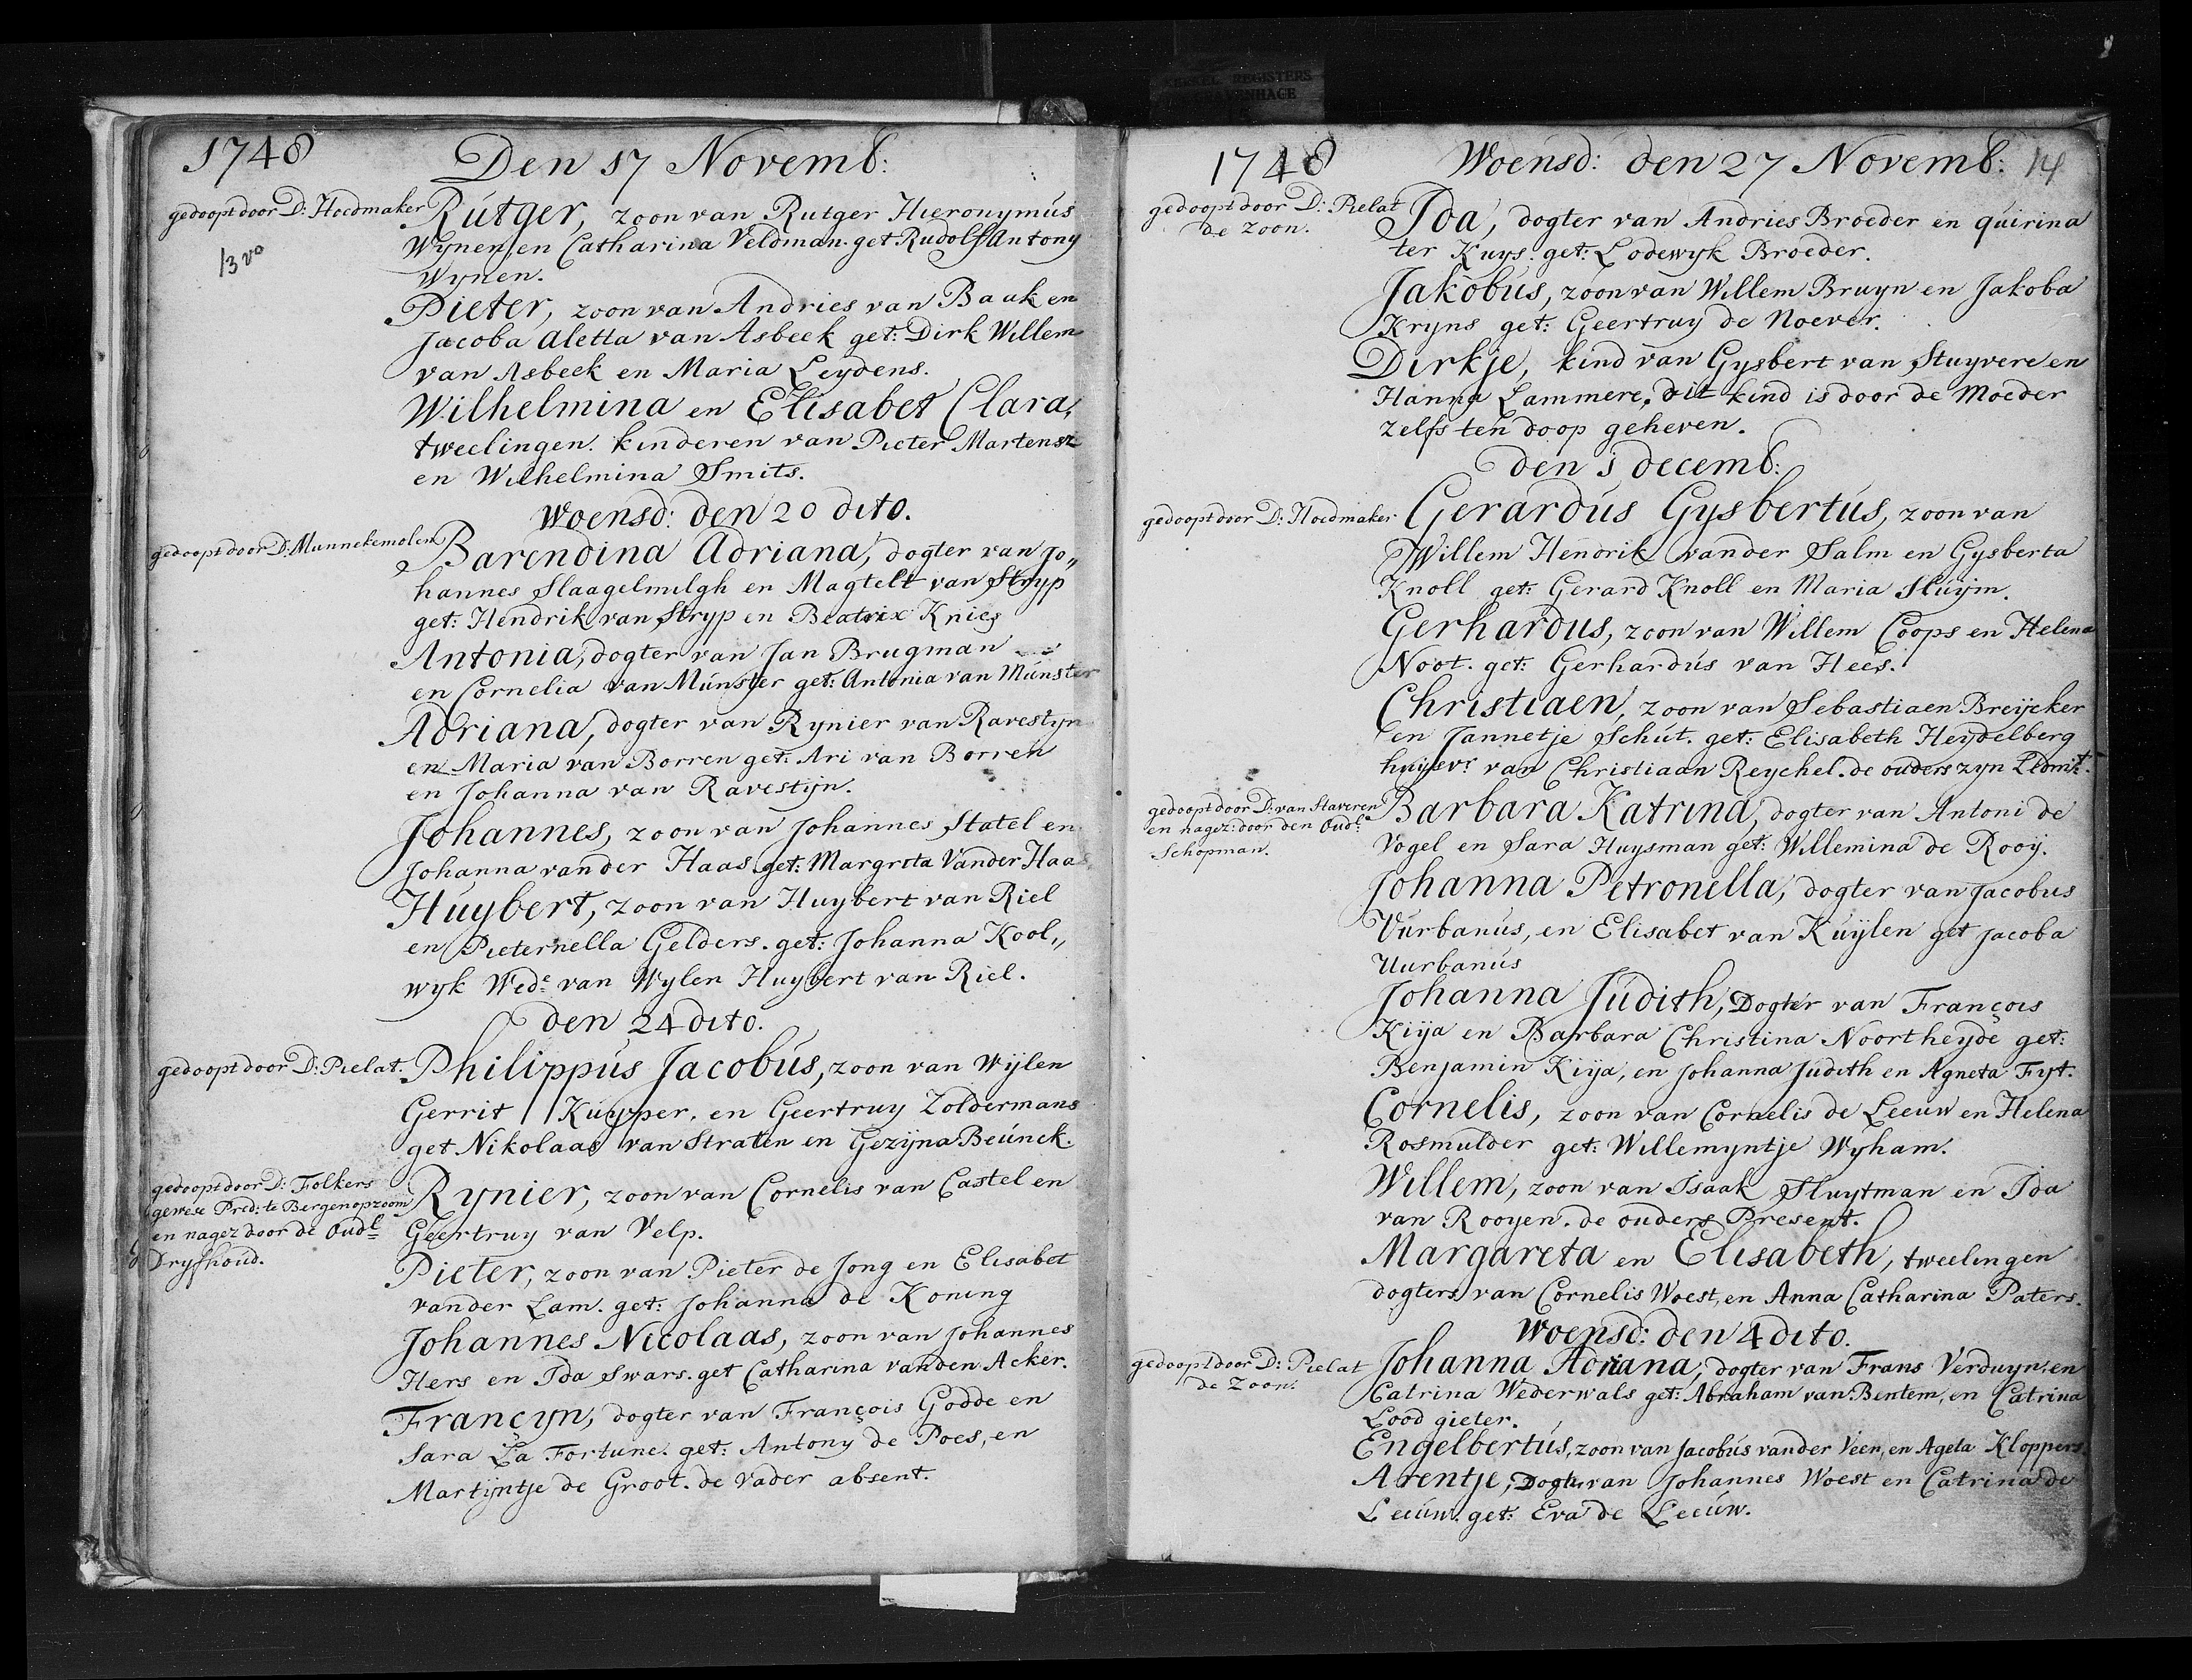 KERKEL. REGISTERS
'S GRAVENHAGE
1748
Den 17 Novemb:
gedoopt door D: Hoedmaker
13 vo
Rutger, zoon van Rutger Hieronymus
Wynen, en Catharina Veldman. get. Rudolf Antony
Wynen.
Pieter, zoon van Andries van Baak en
Jacoba Aletta van Asbeek get: Dirk Willem
van Asbeek en Maria Leydens.
Wilhelmina en Elisabet Clara,
tweelingen. kinderen van Pieter Martensz
en Wilhelmina Smits.
Woensd: den 20 dito.
gedoopt door D: Munnekemolen
Barendina Adriana, dogter van Jo„
hannes Slaagelmilgh en Magtelt van Stryp
get: Hendrik van Stryp en Beatrix Knies
Antonia, dogter van Jan Brugman
en Cornelia van Munster get: Antonia van Munster
Adriana, dogter van Rynier van Ravestyn
en Maria van Borren get: Ari van Borren
en Johanna van Ravestijn.
Johannes, zoon van Johannes Statel en
Johanna vander Haas. get: Margrita Vander Haa
Huybert, zoon van Huybert van Riel
en Pieternella Gelders. get: Johanna Kool„
wyk Wede van Wylen Huybert van Riel.
den 24 dito.
gedoopt door D: Pielat.
Philippus Jacobus, zoon van Wijlen
Gerrit Kuyper, en Geertruy Zoldermans
get Nikolaas van Straten en Gezijna Beunck.
gedoopt door D: Folkers
geweze Pred: te Bergenopzoom
en nagez door de Oudl
Dryfhoud.
Rynier, zoon van Cornelis van Castel en
Geertruy van Velp.
Pieter, zoon van Pieter de Jong en Elisabet
vander Lam. get: Johanna de Koning
Johannes Nicolaas, zoon van Johannes
Hers en Ida Swars. get Catharina vanden Acker.
Françyn, dogter van François Godde en
Sara La Fortune. get: Antony de Poes, en
Martijntje de Groot. de vader absent.
1748
Woensd: den 27 Novemb:
14
gedoopt door D: Pielat
de Zoon.
Ida, dogter van Andries Broeder en quirina
ter Kuys. get: Lodewyk Broeder.
Jakobus, zoon van Willem Bruyn en Jakoba
Kryns get: Geertruy de Noever.
Dirkje, kind van Gysbert van Stuyvere en
Hanna Lammere, dit kind is door de Moeder
zelfs ten doop geheven.
den 1 decemb:
gedoopt door D: Hoedmaker
Gerardus Gysbertus, zoon van
Willem Hendrik vander Salm en Gysberta
Knoll get: Gerard Knoll en Maria Sluym.
Gerhardus, zoon van Willem Coops en Helena
Noot. get: Gerhardus van Hees.
Christiaen, zoon van Sebastiaen Breijcker
en Jannetje Schut. get: Elisabeth Heydelberg
huijsvr van Christiaan Reychel. de ouders zyn Ledmt.
gedoopt door D: van Staveren
en nagez: door den Oudl
Schopman.
Barbara Katrina, dogter van Antoni de
Vogel en Sara Huysman get: Willemina de Rooy.
Johanna Petronella, dogter van Jacobus
Vurbanus, en Elisabet van Kuijlen get Jacoba
Uurbanus
Johanna Judith, Dogter van François
Kiija en Barbara Christina Noortheyde get:
Benjamin Kiija, en Johanna Judith en Agneta Fyt.
Cornelis, zoon van Cornelis de Leeuw en Helena
Rosmulder get: Willemyntje Wyham.
Willem, zoon van Isaak Sluytman en Ida
van Rooyen. de ouders Present.
Margareta en Elisabeth, tweelingen
dogters van Cornelis Woest, en Anna Catharina Paters.
Woensd: den 4 dito.
gedoopt door D: Pielat
de Zoon.
Johanna Adriana, dogter van Frans Verduyn en
Catrina Wederwals get: Abraham van Bentem, en Catrina
Lood gieter.
Engelbertus, zoon van Jacobus vander Veen, en Ageta Kloppers.
Arentje, Dogter van Johannes Woest en Catrina de
Leeuw. get: Eva de Leeuw.